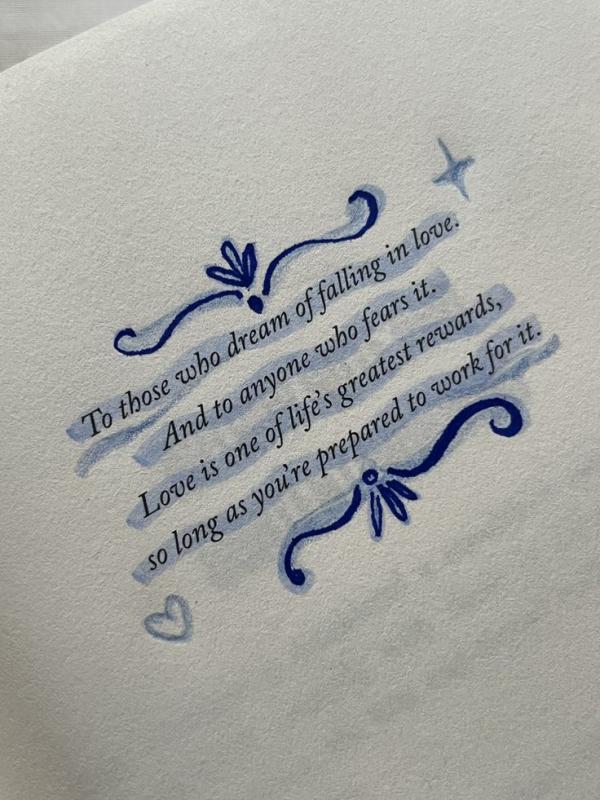 To those who dream of falling in love.
And to anyone who fears it.
Love is one of life's greatest rewards,
so long as you're prepared to work for it.